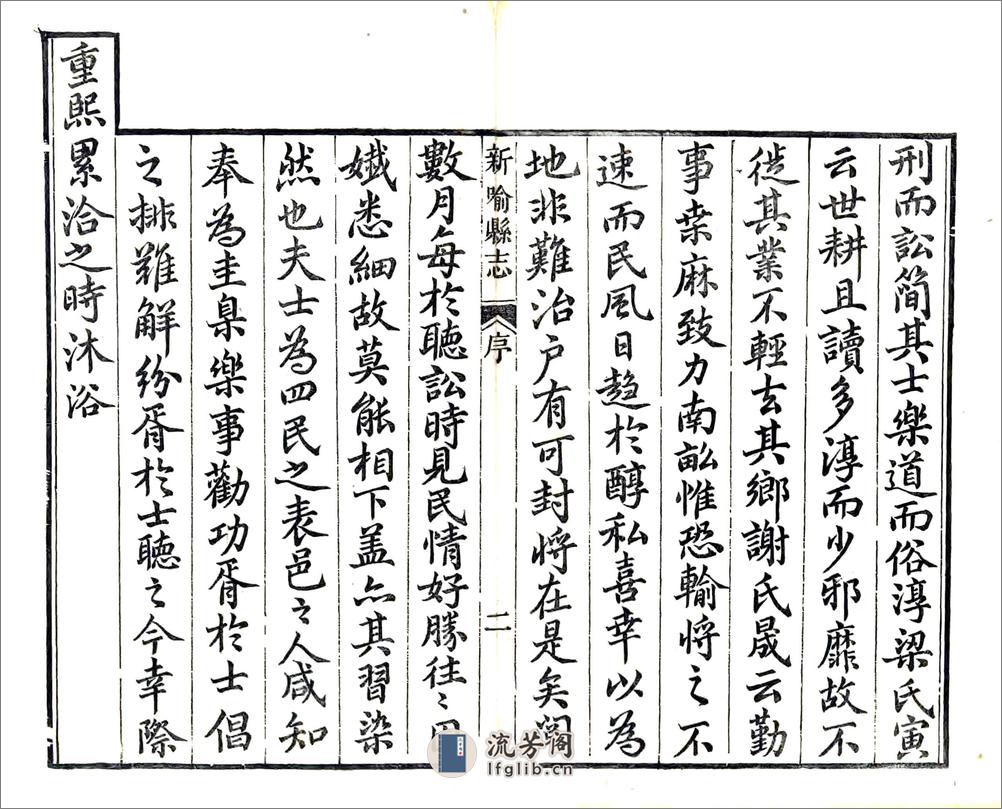 刑而訟簡其士樂道而俗淳梁氏寅
云世耕且讀多淳而少邪靡故不
徙其業不輕去其鄉謝氏晟云勤
事桒麻致力南畝惟恐輸將之不
速而民風日趋於醇私喜幸以為
地非難治户有可封將在是矣閱
新喻縣志
序
二
數月每於聽訟時見民情好勝往〻因
孅悉細故莫能相下盖亦其習染
然也夫士為四民之表邑之人咸知
奉為圭臬樂事勸功胥於士倡
之排難解紛胥於士聽之今幸際
重熙累洽之時沐浴
流芳阁
lfglib.cn